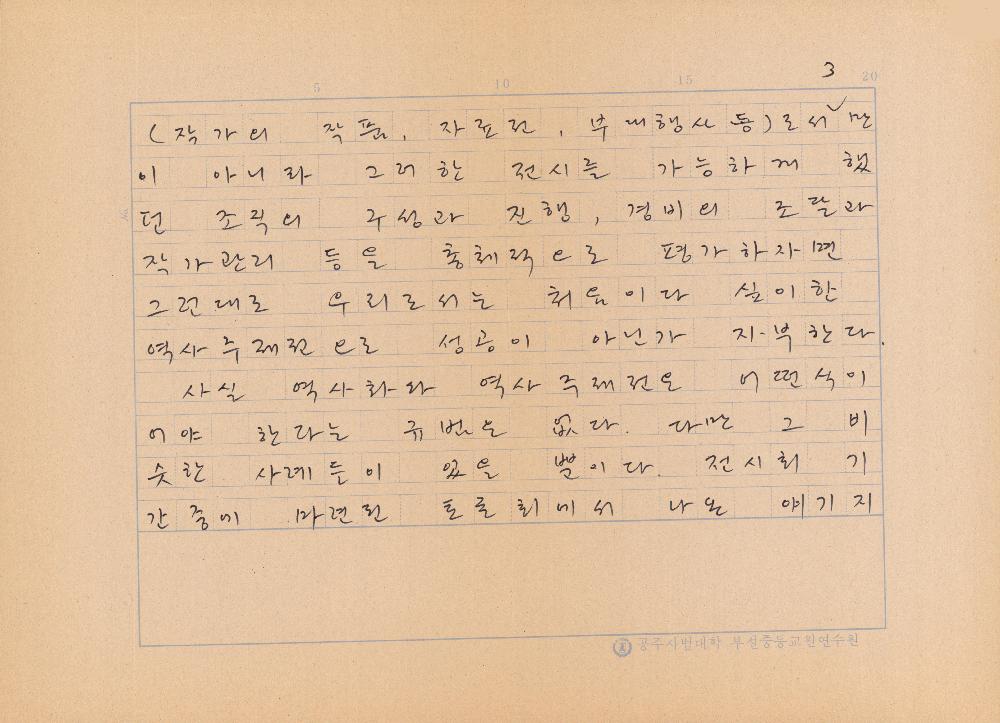 3
5 10 15 20
(작가의 작품, 자료전, 부대행사 등)로서만
이 아니라 그러한 전시를 가능하게 했
던 조직의 구성과 진행, 경비의 조달과
작가관리 등을 총체적으로 평가하자면
그런대로 우리로서는 처음이다 싶이한
역사주제전으로 성공이 아닌가 자부한다.
사실 역사화와 역사주제전은 어떤식이
어야 한다는 규범은 없다. 다만 그 비
슷한 사례들이 있을 뿐이다. 전시회 기
간 중에 마련된 토론회에서 나온 얘기지
공주사범대학 부설중등교원연수원